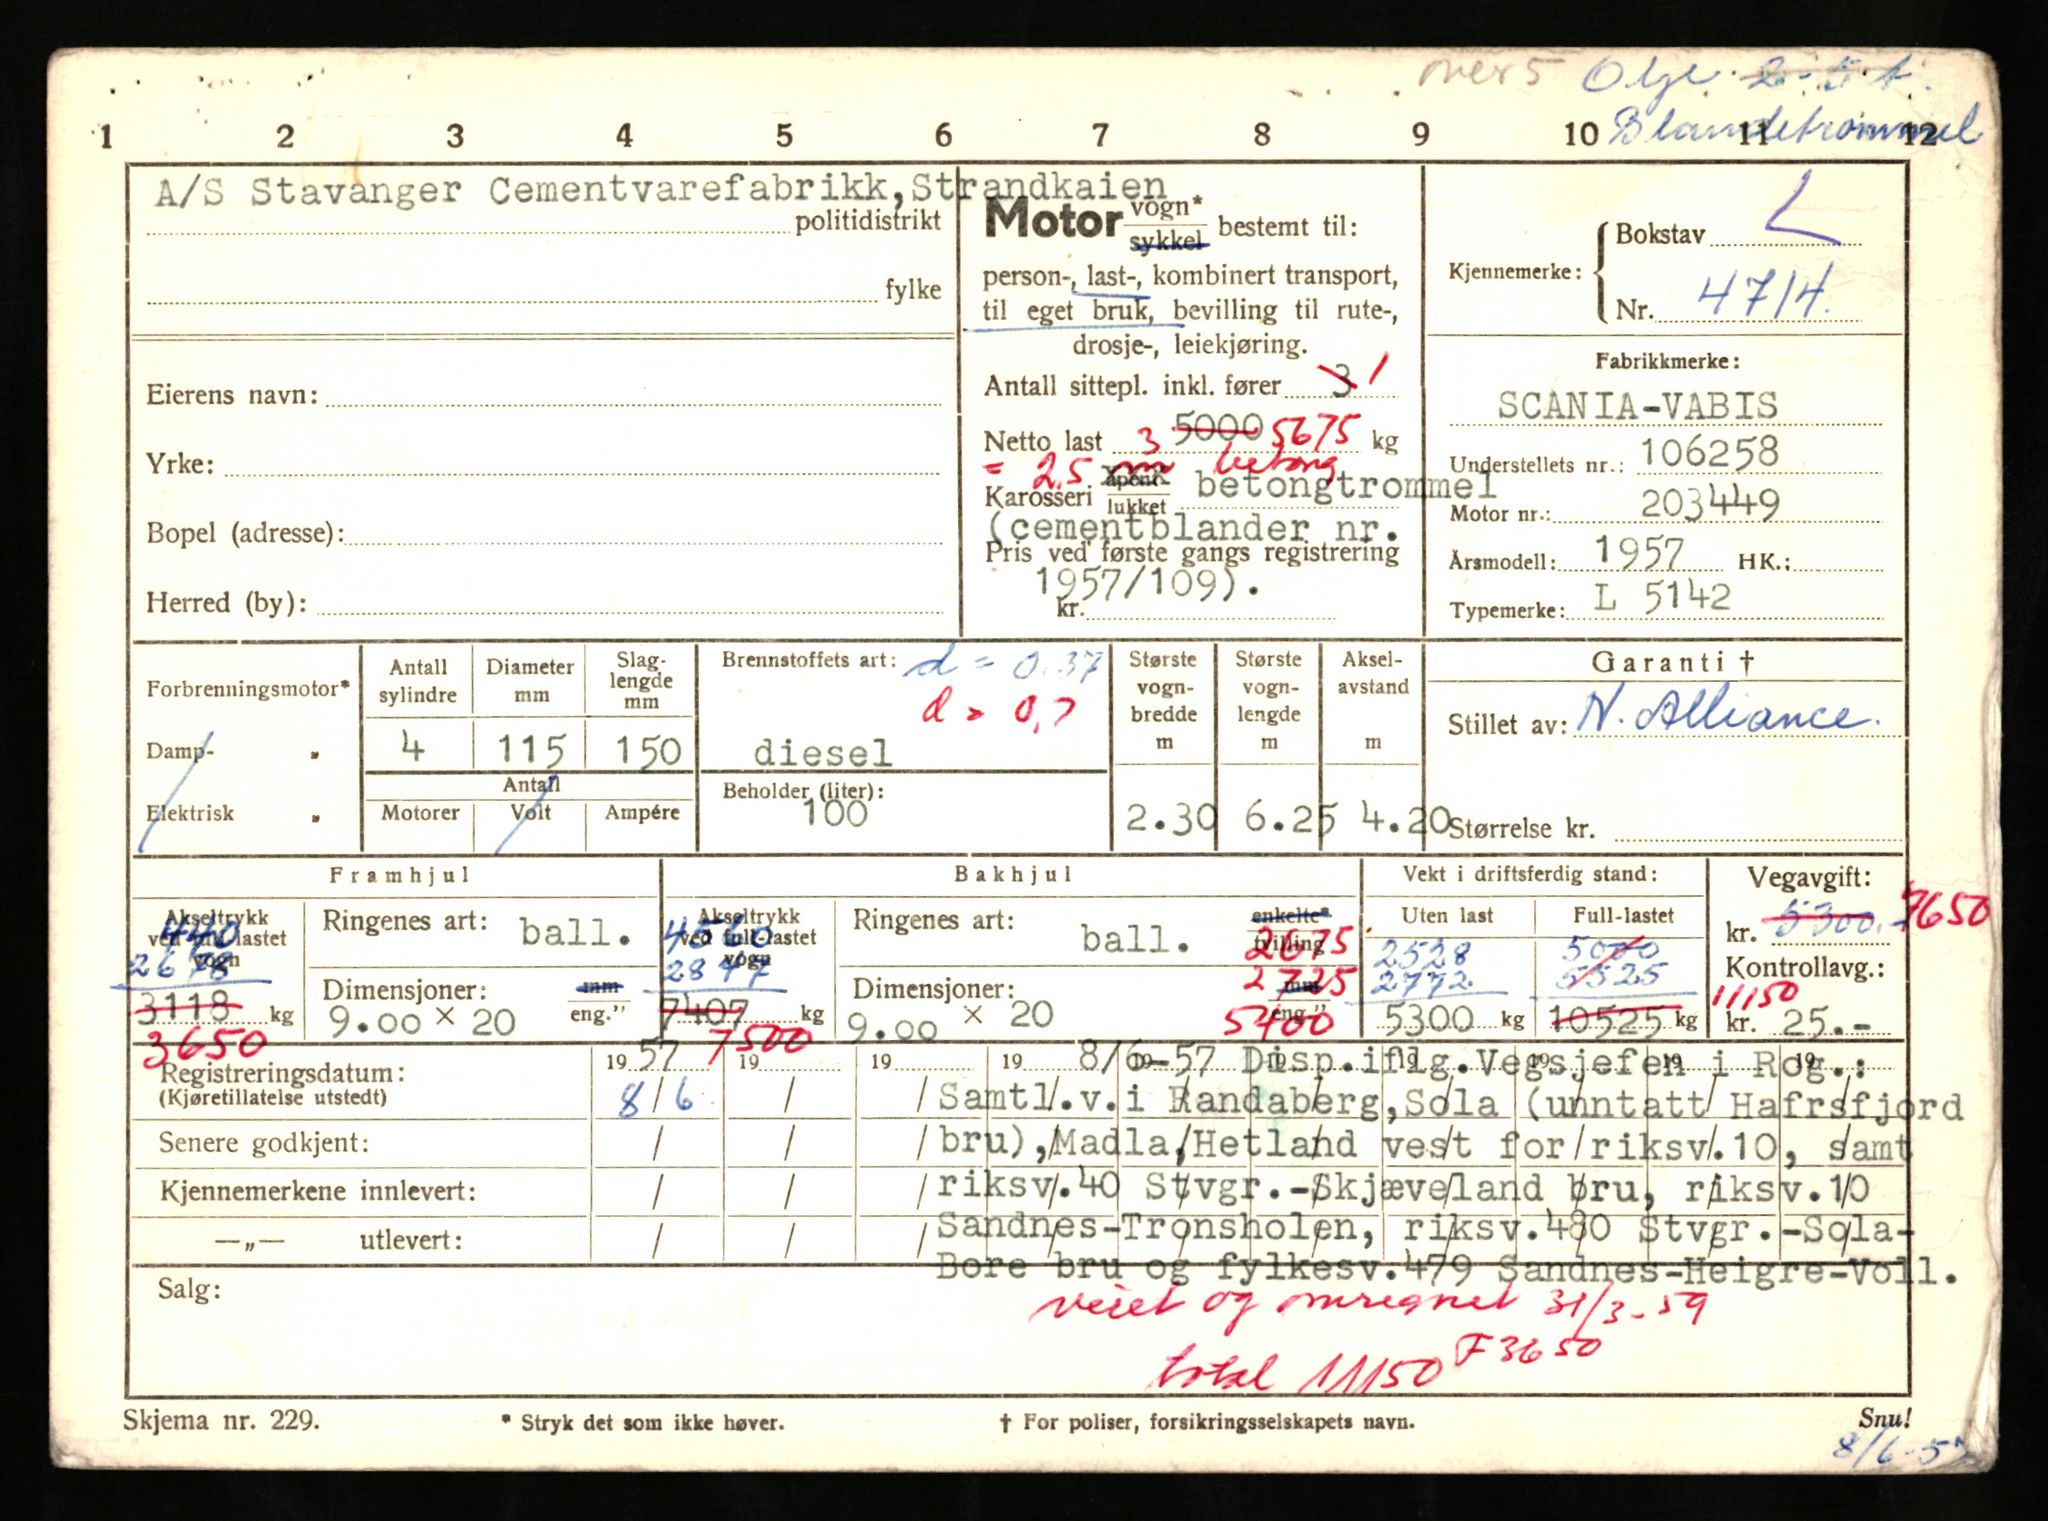 over 5 Olje 2-5 t.
Blandetrommel
1 2 3 4 5 6 7 8 9 10 11 12
A/S Stavanger Cementvarefabrikk, Strandkaien
politidistrikt
fylke
Eierens navn:
Yrke:
Bopel (adresse):
Herred (by):
Motor vogn* sykkel bestemt til:
person-, last-, kombinert transport,
til eget bruk, bevilling til rute-,
drosje-, leiekjøring.
Antall sittepl. inkl. fører 3 1
Netto last 5000 5675 kg
= 2,5 m3 betong
Karosseri åpent lukket betongtrommel
(cementblander nr.
Pris ved første gangs registrering
1957/109).
kr.
Kjennemerke: Bokstav L
Nr. 4714.
Fabrikkmerke:
SCANIA-VABIS
Understellets nr.: 106258
Motor nr.: 203449
Årsmodell: 1957 HK.:
Typemerke: L 5142
Forbrenningsmotor*
Damp- „
Elektrisk „
Antall sylindre 4
Diameter mm 115
Slaglengde mm 150
Antall
Motorer Volt Ampére
Brennstoffets art: d = 0.37
d = 0,7
diesel
Beholder (liter):
100
Største vognbredde m 2.30
Største vognlengde m 6.25
Akselavstand m 4.20
Garanti †
Stillet av: N. Alliance.
Størrelse kr.
Framhjul
Akseltrykk ved full-lastet vogn
440
2678
3118 kg
3650
Ringenes art: ball.
Dimensjoner: mm eng."
9.00 x 20
Bakhjul
Akseltrykk ved full-lastet vogn
4560
2847
7407 kg
7500
Ringenes art: ball. enkelte* tvilling
2675
2725
5400
Dimensjoner: mm eng."
9.00 x 20
Vekt i driftsferdig stand:
Uten last Full-lastet
2528 5000
2772 5525
5300 kg 10525 kg
11150
Vegavgift:
kr. 5300.- 7650
Kontrollavg.:
kr. 25.-
Registreringsdatum:
(Kjøretillatelse utstedt)
1957 19 19 19 19 19 19 19 19 19
8/6
Senere godkjent:
Kjennemerkene innlevert:
—„— utlevert:
8/6-57 Disp.iflg.Vegsjefen i Rog.:
Samtl.v.i Randaberg,Sola (unntatt Hafrsfjord
bru),Madla,Hetland vest for riksv.10, samt
riksv.40 Stvgr.-Skjæveland bru, riksv.10
Sandnes-Tronsholen, riksv.480 Stvgr.-Sola-
Bore bru og fylkesv.479 Sandnes-Heigre-Voll.
Salg:
veiet og omregnet 31/3-59
total 11150 F 3650
Skjema nr. 229. * Stryk det som ikke høver. † For poliser, forsikringsselskapets navn. Snu!
8/6-57